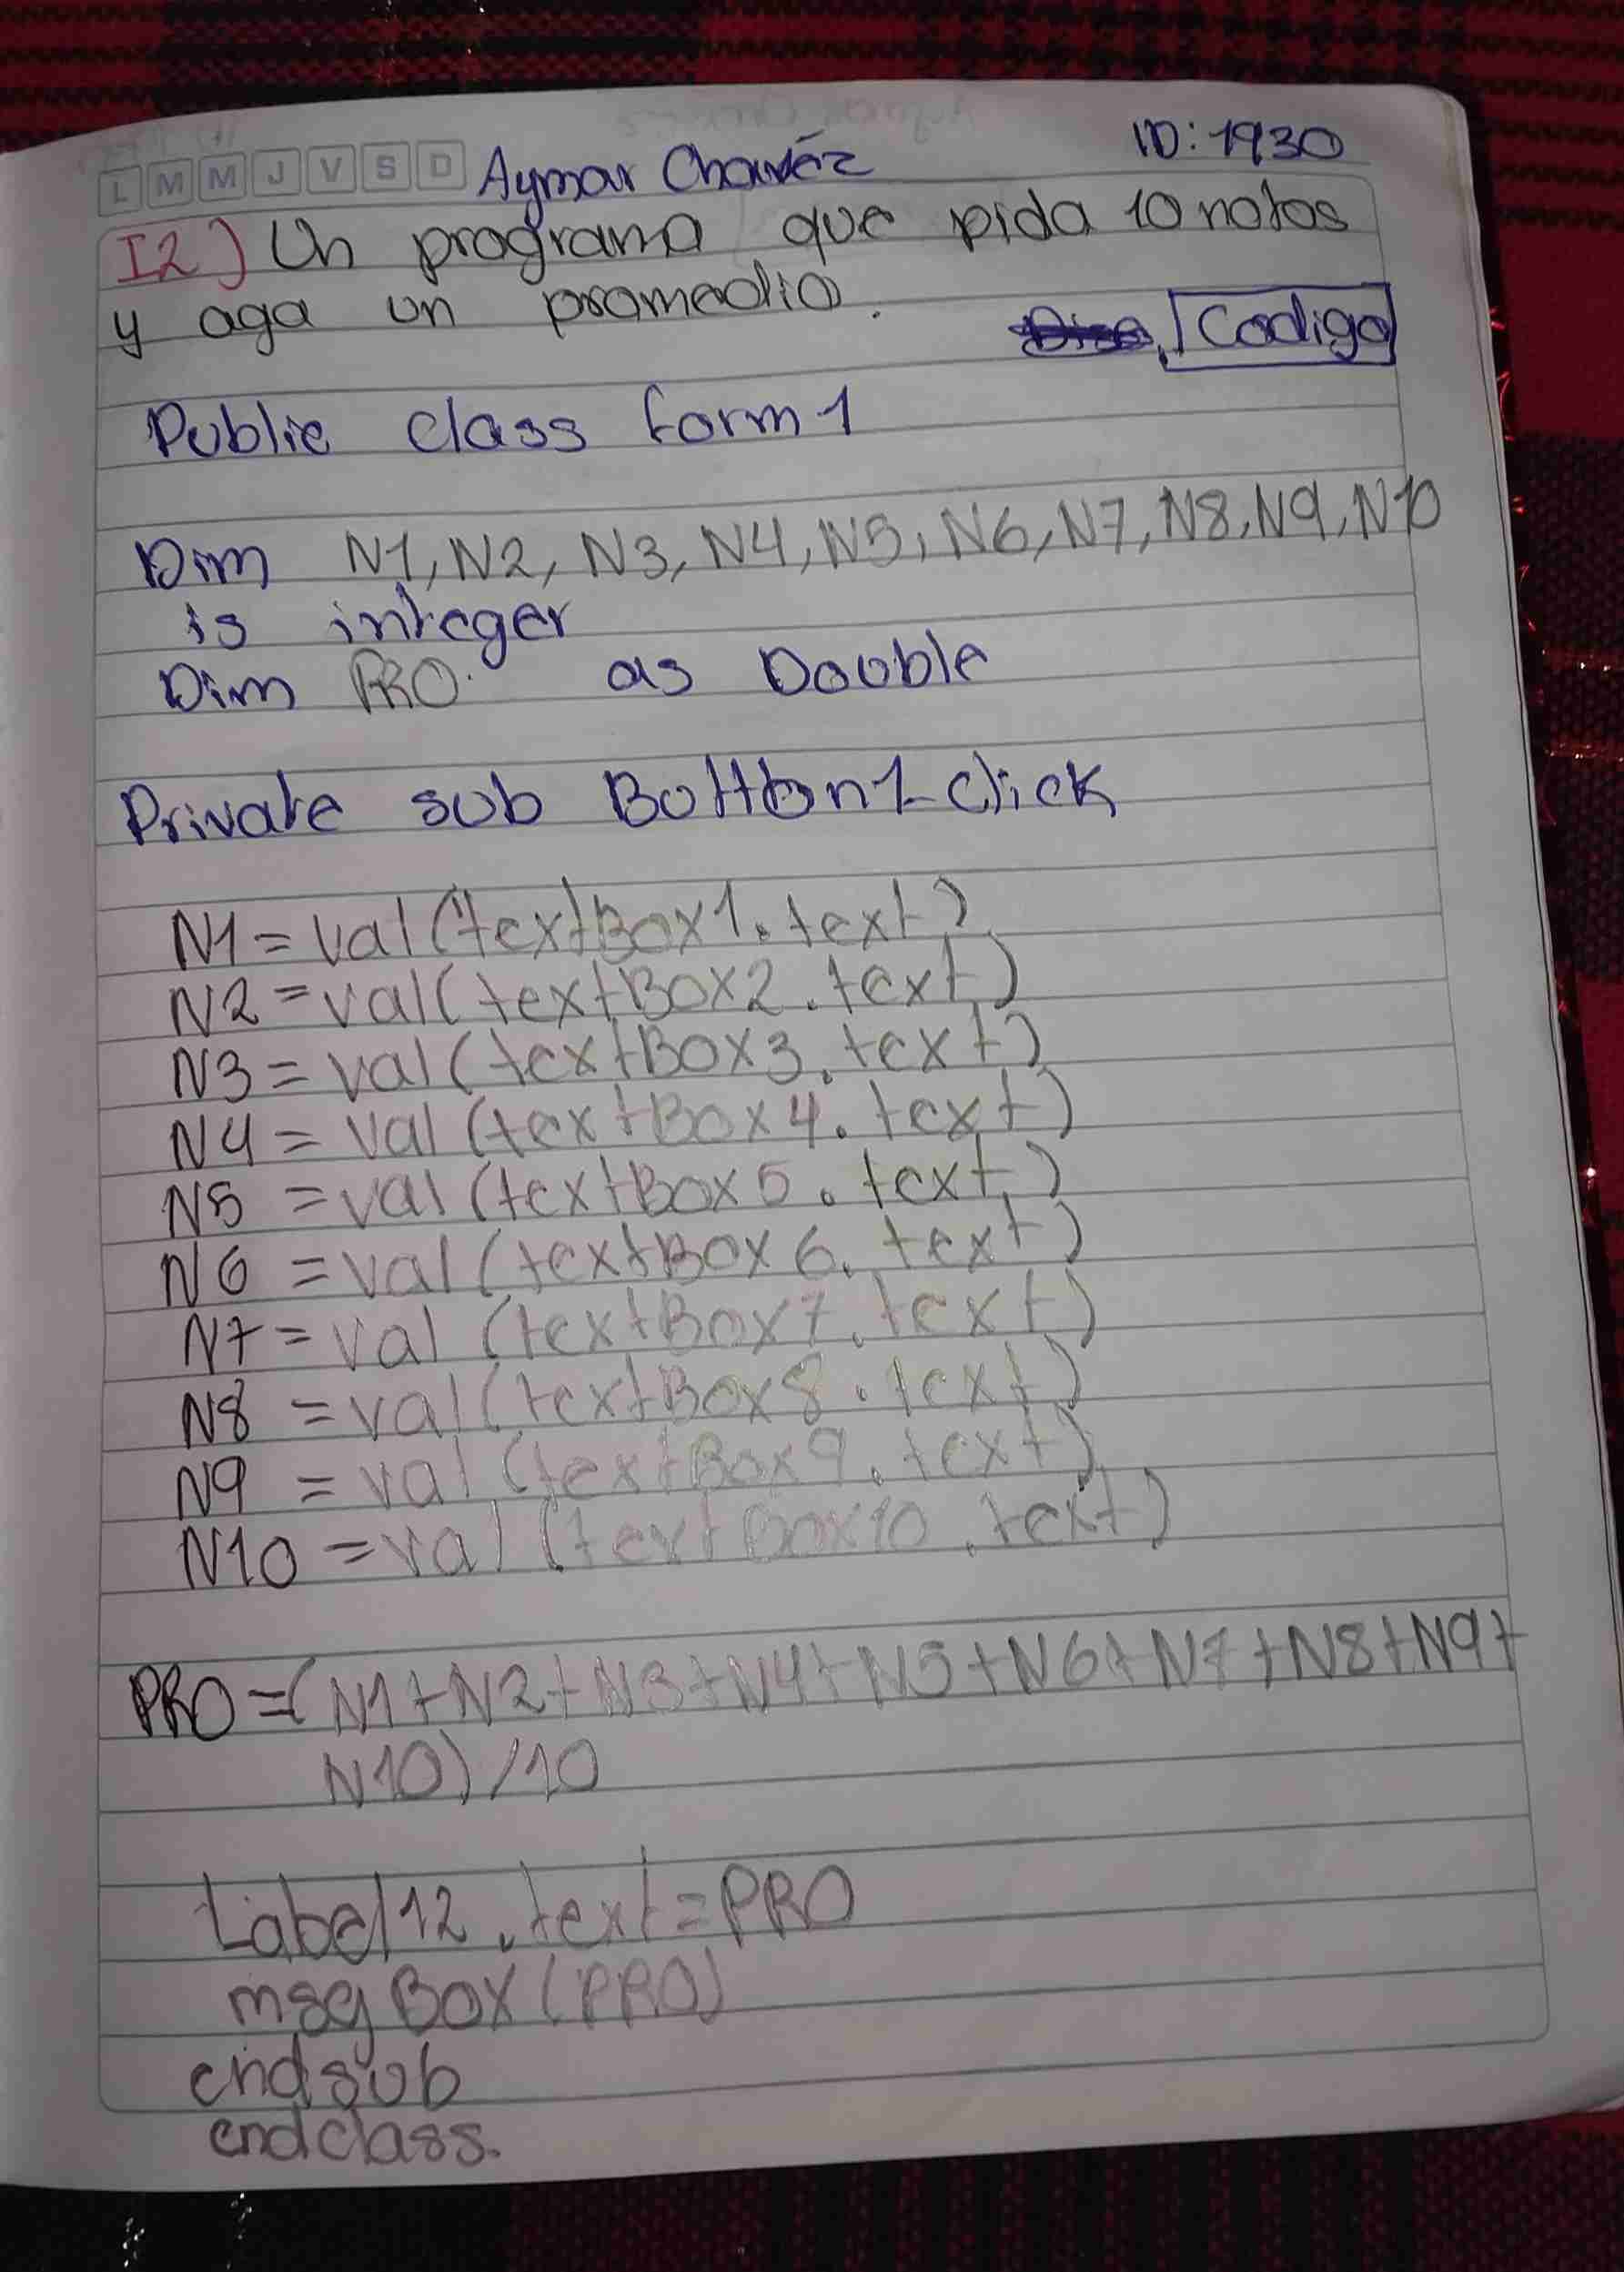 L M M J V S D Aymar Chavéz ID: 1930
I2) Un programa que pida 10 notas
y aga un promedio.
Codigo
Public class form1
Dim N1, N2, N3, N4, N5, N6, N7, N8, N9, N10
is integer
Dim PRO as Dooble
Private sub Botton1-click
N1 = val (textBox1.text)
N2 = val (textBox2.text)
N3 = val (textBox3.text)
N4 = val (textBox4.text)
N5 = val (textBox5.text)
N6 = val (textBox6.text)
N7 = val (textBox7.text)
N8 = val (textBox8.text)
N9 = val (textBox9.text)
N10 = val (textBox10.text)
PRO = (N1+N2+N3+N4+N5+N6+N7+N8+N9+
N10) /10
Label12.text = PRO
msgBox (PRO)
endsub
endclass.